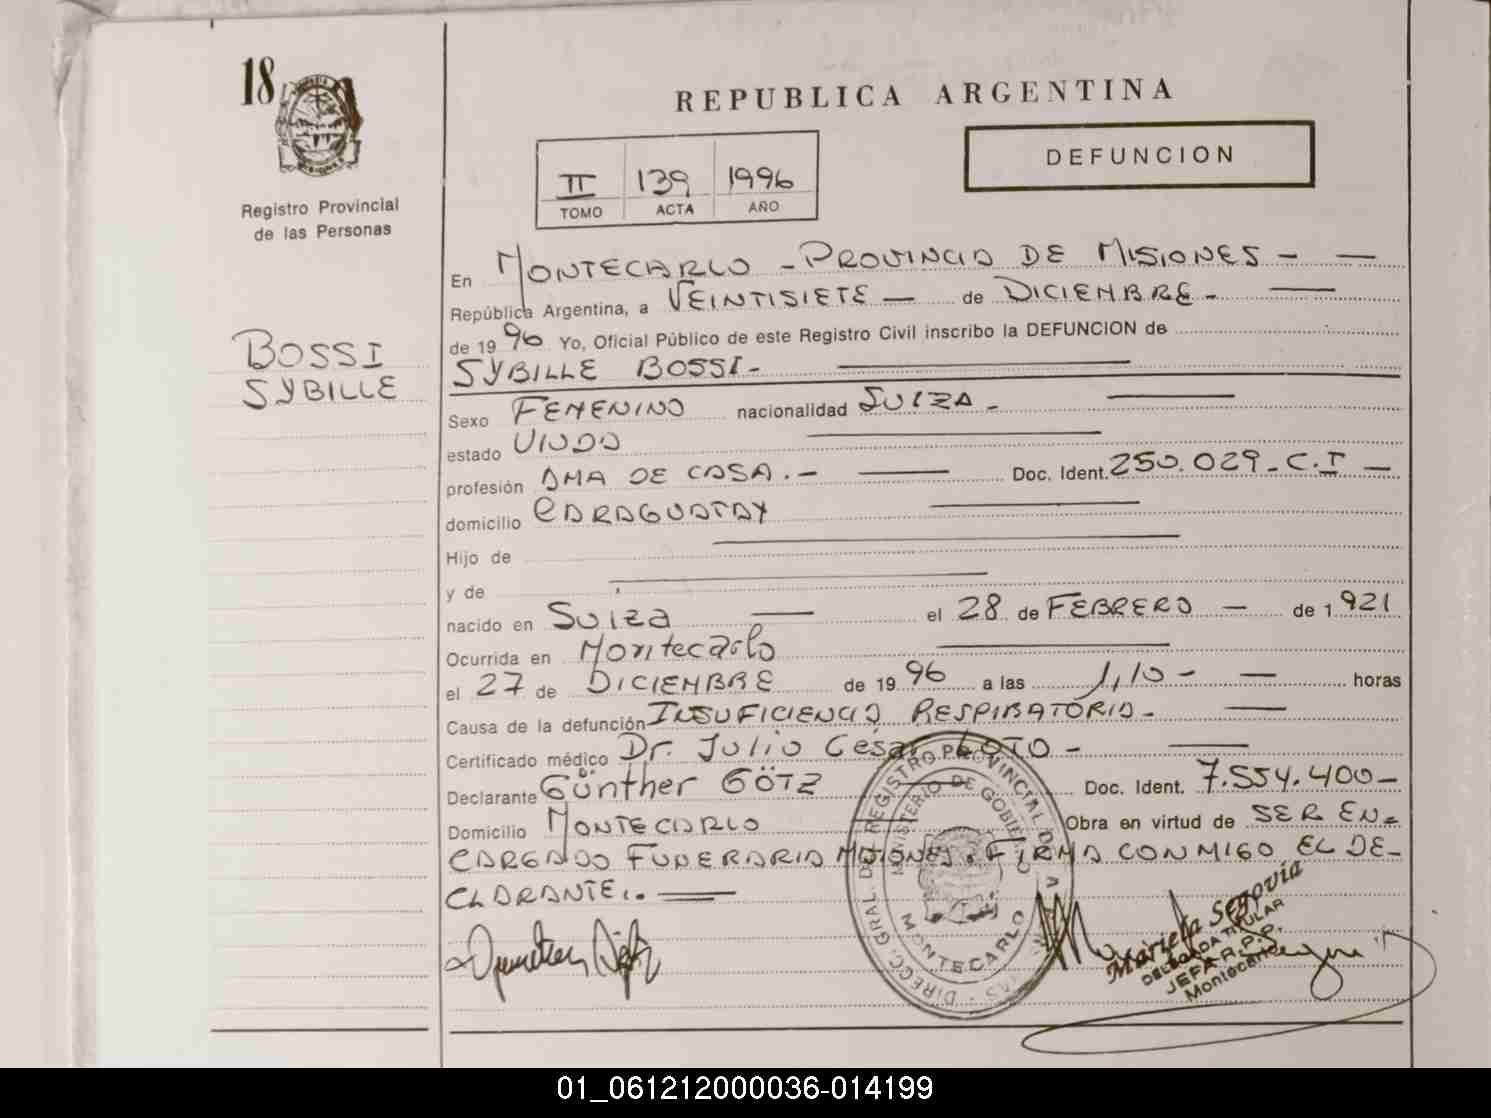 18
Registro Provincial
de las Personas
BOSSI
SYBILLE
REPUBLICA ARGENTINA
DEFUNCION
II 139 1996
TOMO ACTA AÑO
En MONTECARLO - PROVINCIA DE MISIONES -
República Argentina, a VEINTISIETE - de DICIEMBRE -
de 19 96 Yo, Oficial Público de este Registro Civil inscribo la DEFUNCION de
SYBILLE BOSSI -
Sexo FEMENINO nacionalidad SUIZA -
estado VIUDA
profesión AMA DE CASA. - Doc. Ident. 250.029 - C.I -
domicilio CARAGUATAY
Hijo de
y de
nacido en SUIZA el 28 de FEBRERO - de 1.921
Ocurrida en Montecarlo
el 27 de DICIEMBRE de 19 96 a las 1,10 - horas
Causa de la defunción INSUFICIENCIA RESPIRATORIA -
Certificado médico Dr. Julio César LOTO -
Declarante Günther GÖTZ Doc. Ident. 7.554.400 -
Domicilio MONTECARLO Obra en virtud de SER EN-
CARGADO FUNERARIA MISIONES. FIRMA CONMIGO EL DE-
CLARANTE.. -
DIRECC. GRAL. DE REGISTRO PROVINCIAL DE
MINISTERIO DE GOBIERNO
MONTECARLO
Mariela Segovia
DELEGADA TITULAR
JEFA R.P.P.
Montecarlo
01_061212000036-014199